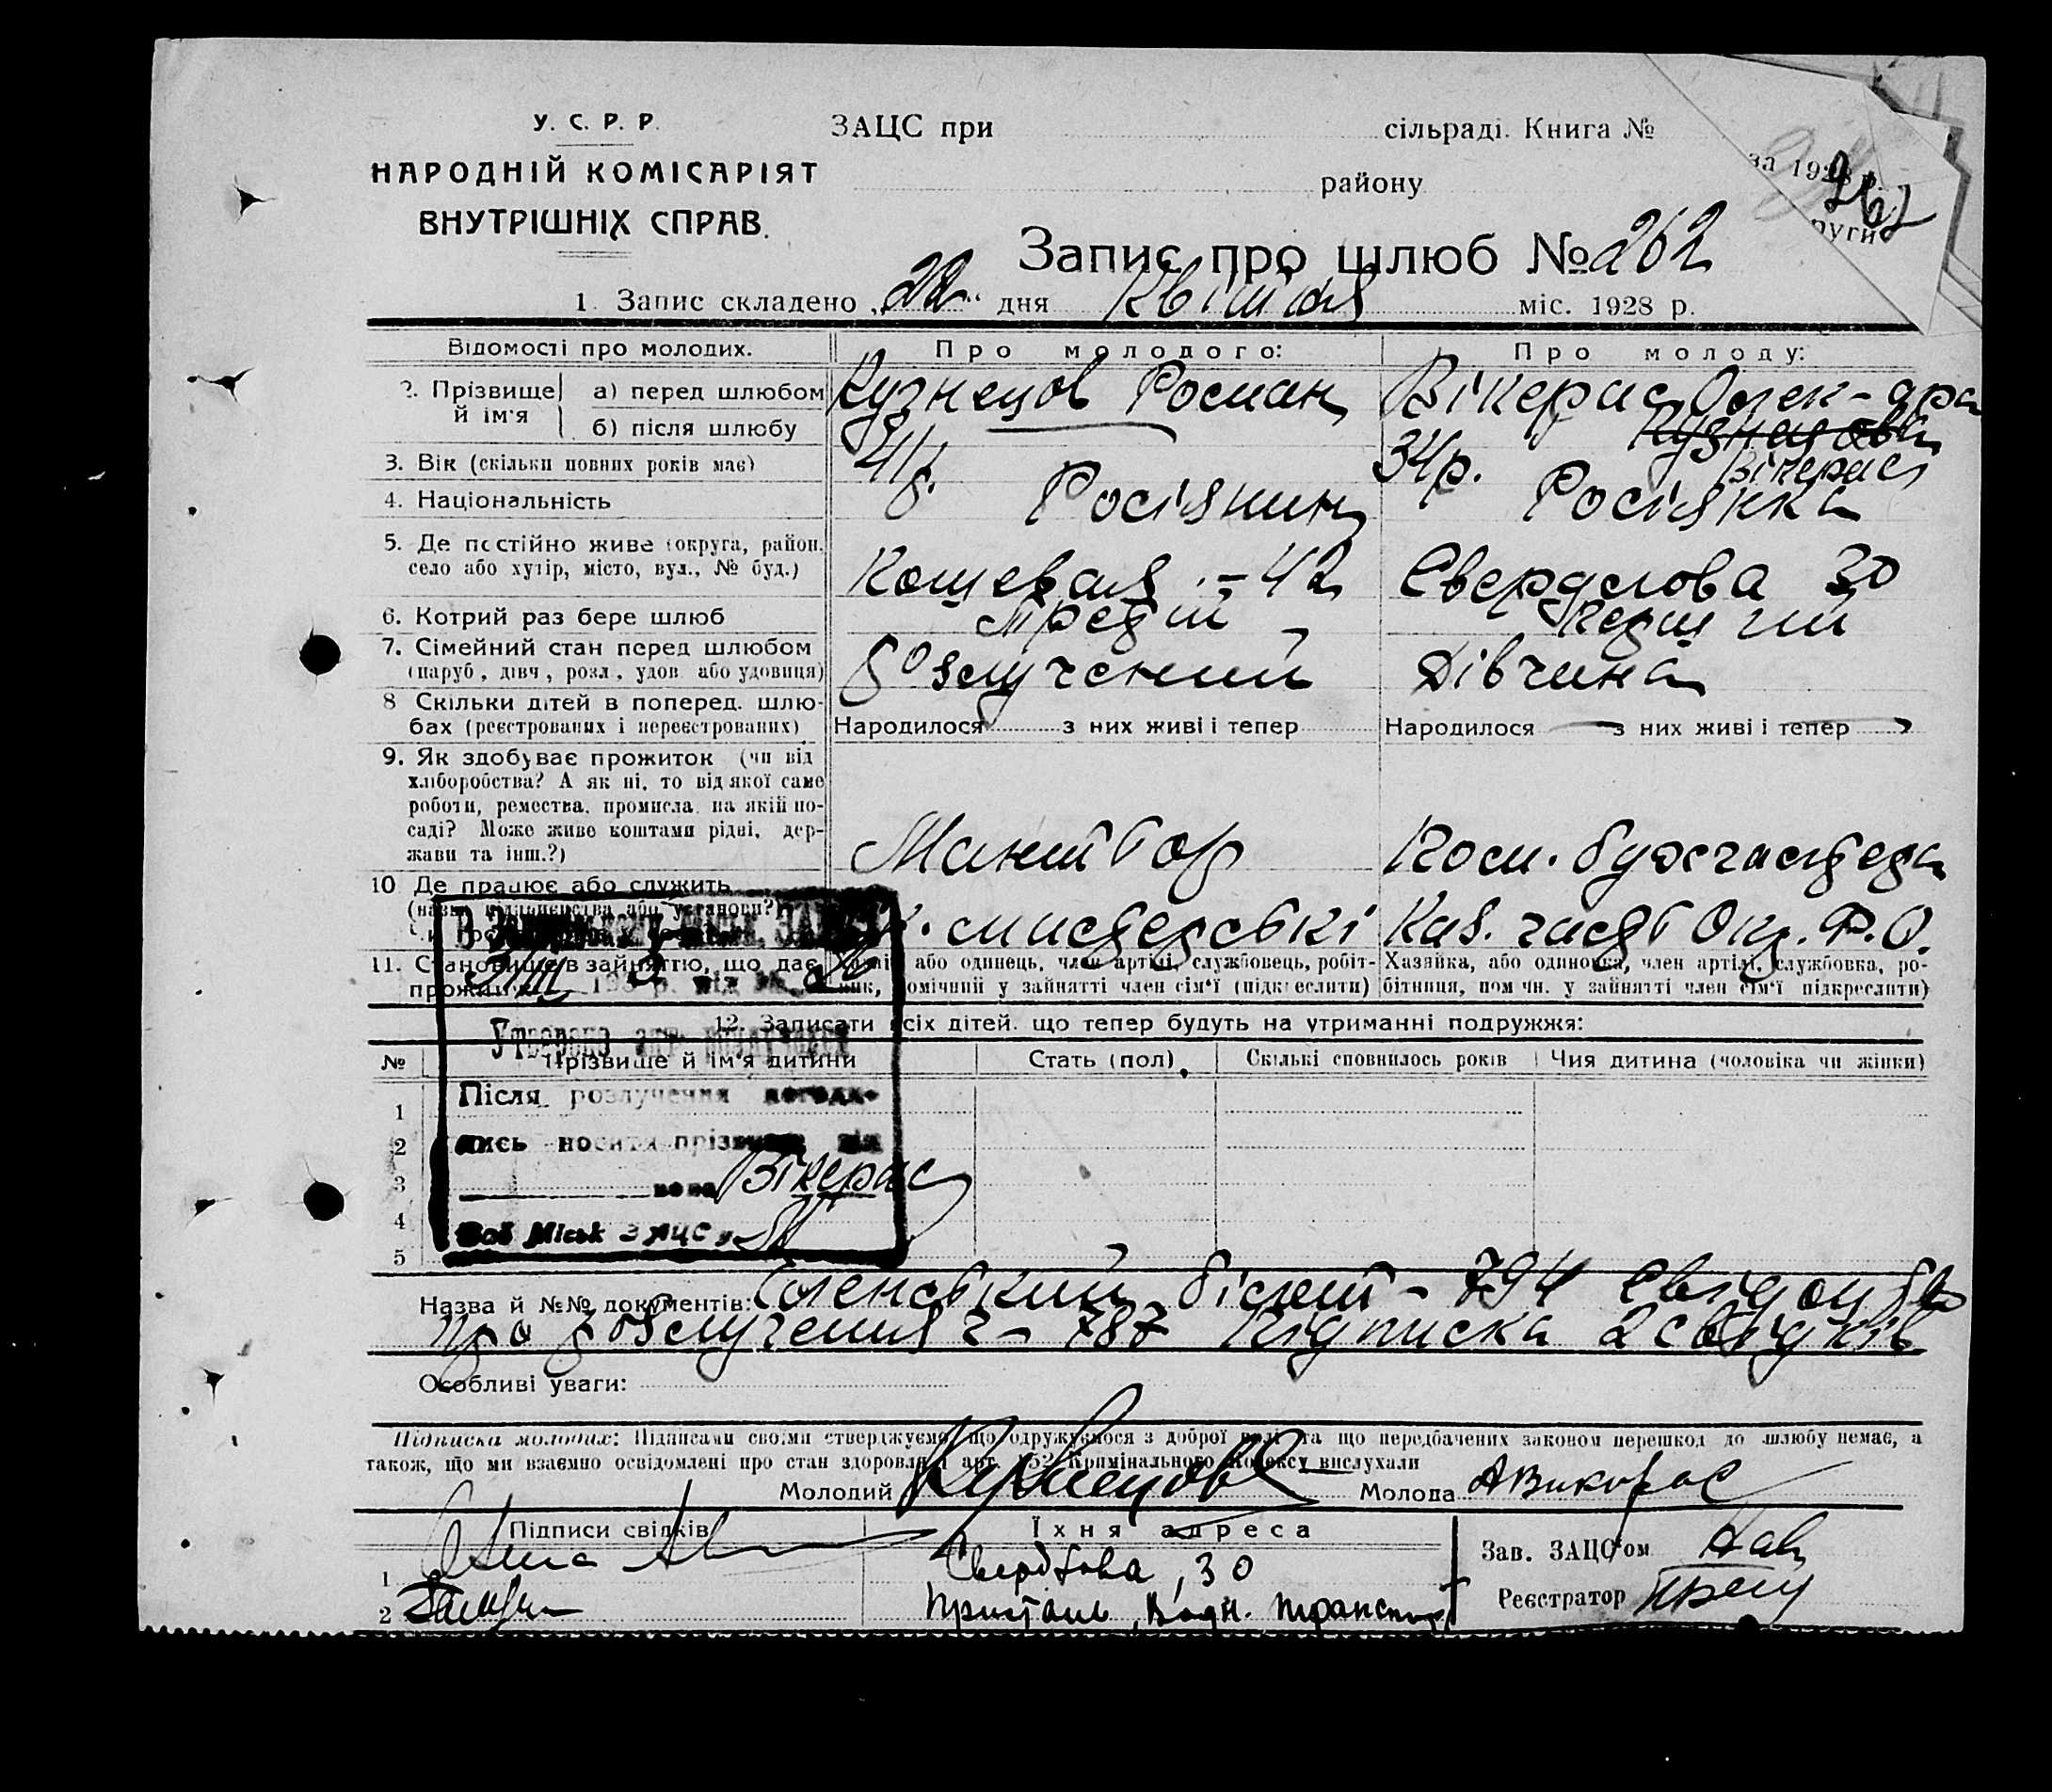 У. С. Р. Р.
НАРОДНІЙ КОМІСАРІЯТ
ВНУТРІШНІХ СПРАВ.
ЗАЦС при сільраді. Книга №
району
за 1928 р.
руги
262
Запис про шлюб № 262
1. Запис складено „22" дня Квітня міс. 1928 р.
Відомості про молодих. Про молодого: Про молоду:
2. Прізвище й ім'я а) перед шлюбом Кузнецов Роман Вікерас Олек-дра
б) після шлюбу Кузнецова
Вікерас
3. Вік (скільки повних років має) 41р. 34р.
4. Національність Росіянин Росіянка
5. Де постійно живе (округа, район, Кощевая - 42 Свердлова 30
село або хутір, місто, вул., № буд.)
6. Котрий раз бере шлюб третій перший
7. Сімейний стан перед шлюбом розлучений Дівчина
(паруб, дівч, розл, удов. або удовиця)
8 Скільки дітей в поперед. шлю- Народилося з них живі і тепер Народилося з них живі і тепер
бах (реєстрованих і нереєстрованих)
9. Як здобуває прожиток (чи від
хліборобства? А як ні, то від якої саме
роботи, ремества, промисла, на якій по-
саді? Може живе коштами рідні, дер-
жави та інш.?) Манитор
10 Де працює або служить
майстерські Каз. часть Окр. Ф. О.
11. Становище в зайняттю, що дає або одинець, член артілі, службовець, робіт- Хазяйка, або одиночка, член артілі, службовка, ро-
омічний у зайнятті член сім'ї (підкреслити) бітниця, пом чн. у зайнятті член сім'ї підкреслити)
12. Записати всіх дітей, що тепер будуть на утриманні подружжя:
№ Прізвище й ім'я дитини Стать (пол) Скількі сповнилось років Чия дитина (чоловіка чи жінки)
1
2
3
4
5
Після розлучення погоди-
лись носити прізвище він
вона Вікерас
Зав Міськ ЗАЦС у
Назва й №№ документів: Членський білет - 794 Свідоцтво
про розлучення ч - 787 Підписка 2 свідків
Особливі уваги:
Підписка молодих: Підписами своїми стверджуємо, що одружуємося з доброї волі та що передбачених законом перешкод до шлюбу немає, а
також, що ми взаємно освідомлені про стан здоровля і арт. 152 Кримінального Кодексу вислухали
Молодий Кузнецов Молода АВикерас
Підписи свідків Їхня адреса
Зав. ЗАЦС'ом
1 Свердлова, 30
Реєстратор
2 Пристань, Водн. транспорт